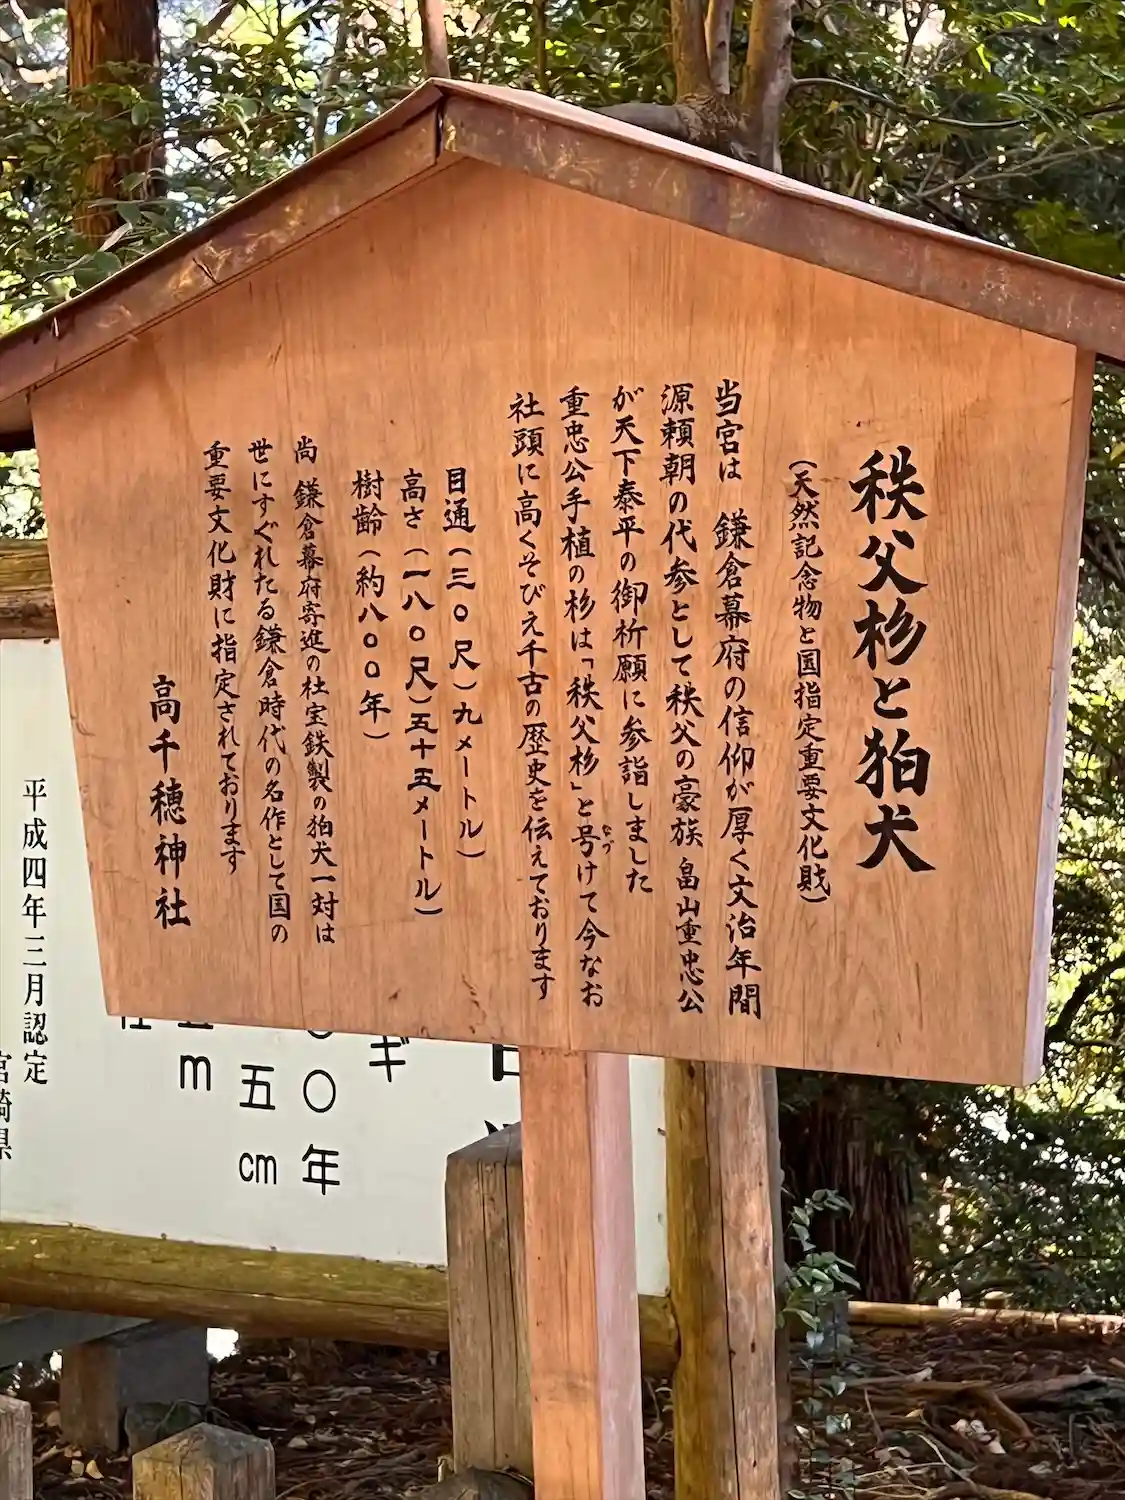 秩父杉と狛犬
(天然記念物と国指定重要文化財)
当宮は 鎌倉幕府の信仰が厚く文治年間
源頼朝の代参として秩父の豪族 畠山重忠公
が天下泰平の御祈願に参詣しました
重忠公手植の杉は「秩父杉」と号けて今なお
なづ
社頭に高くそびえ千古の歴史を伝えております
目通(三〇尺)九メートル)
高さ(一八〇尺)五十五メートル)
樹齢(約八〇〇年)
尚 鎌倉幕府寄進の社宝鉄製の狛犬一対は
世にすぐれたる鎌倉時代の名作として国の
重要文化財に指定されております
高千穂神社
ギ
〇年
五cm
m
平成四年三月認定
宮崎県